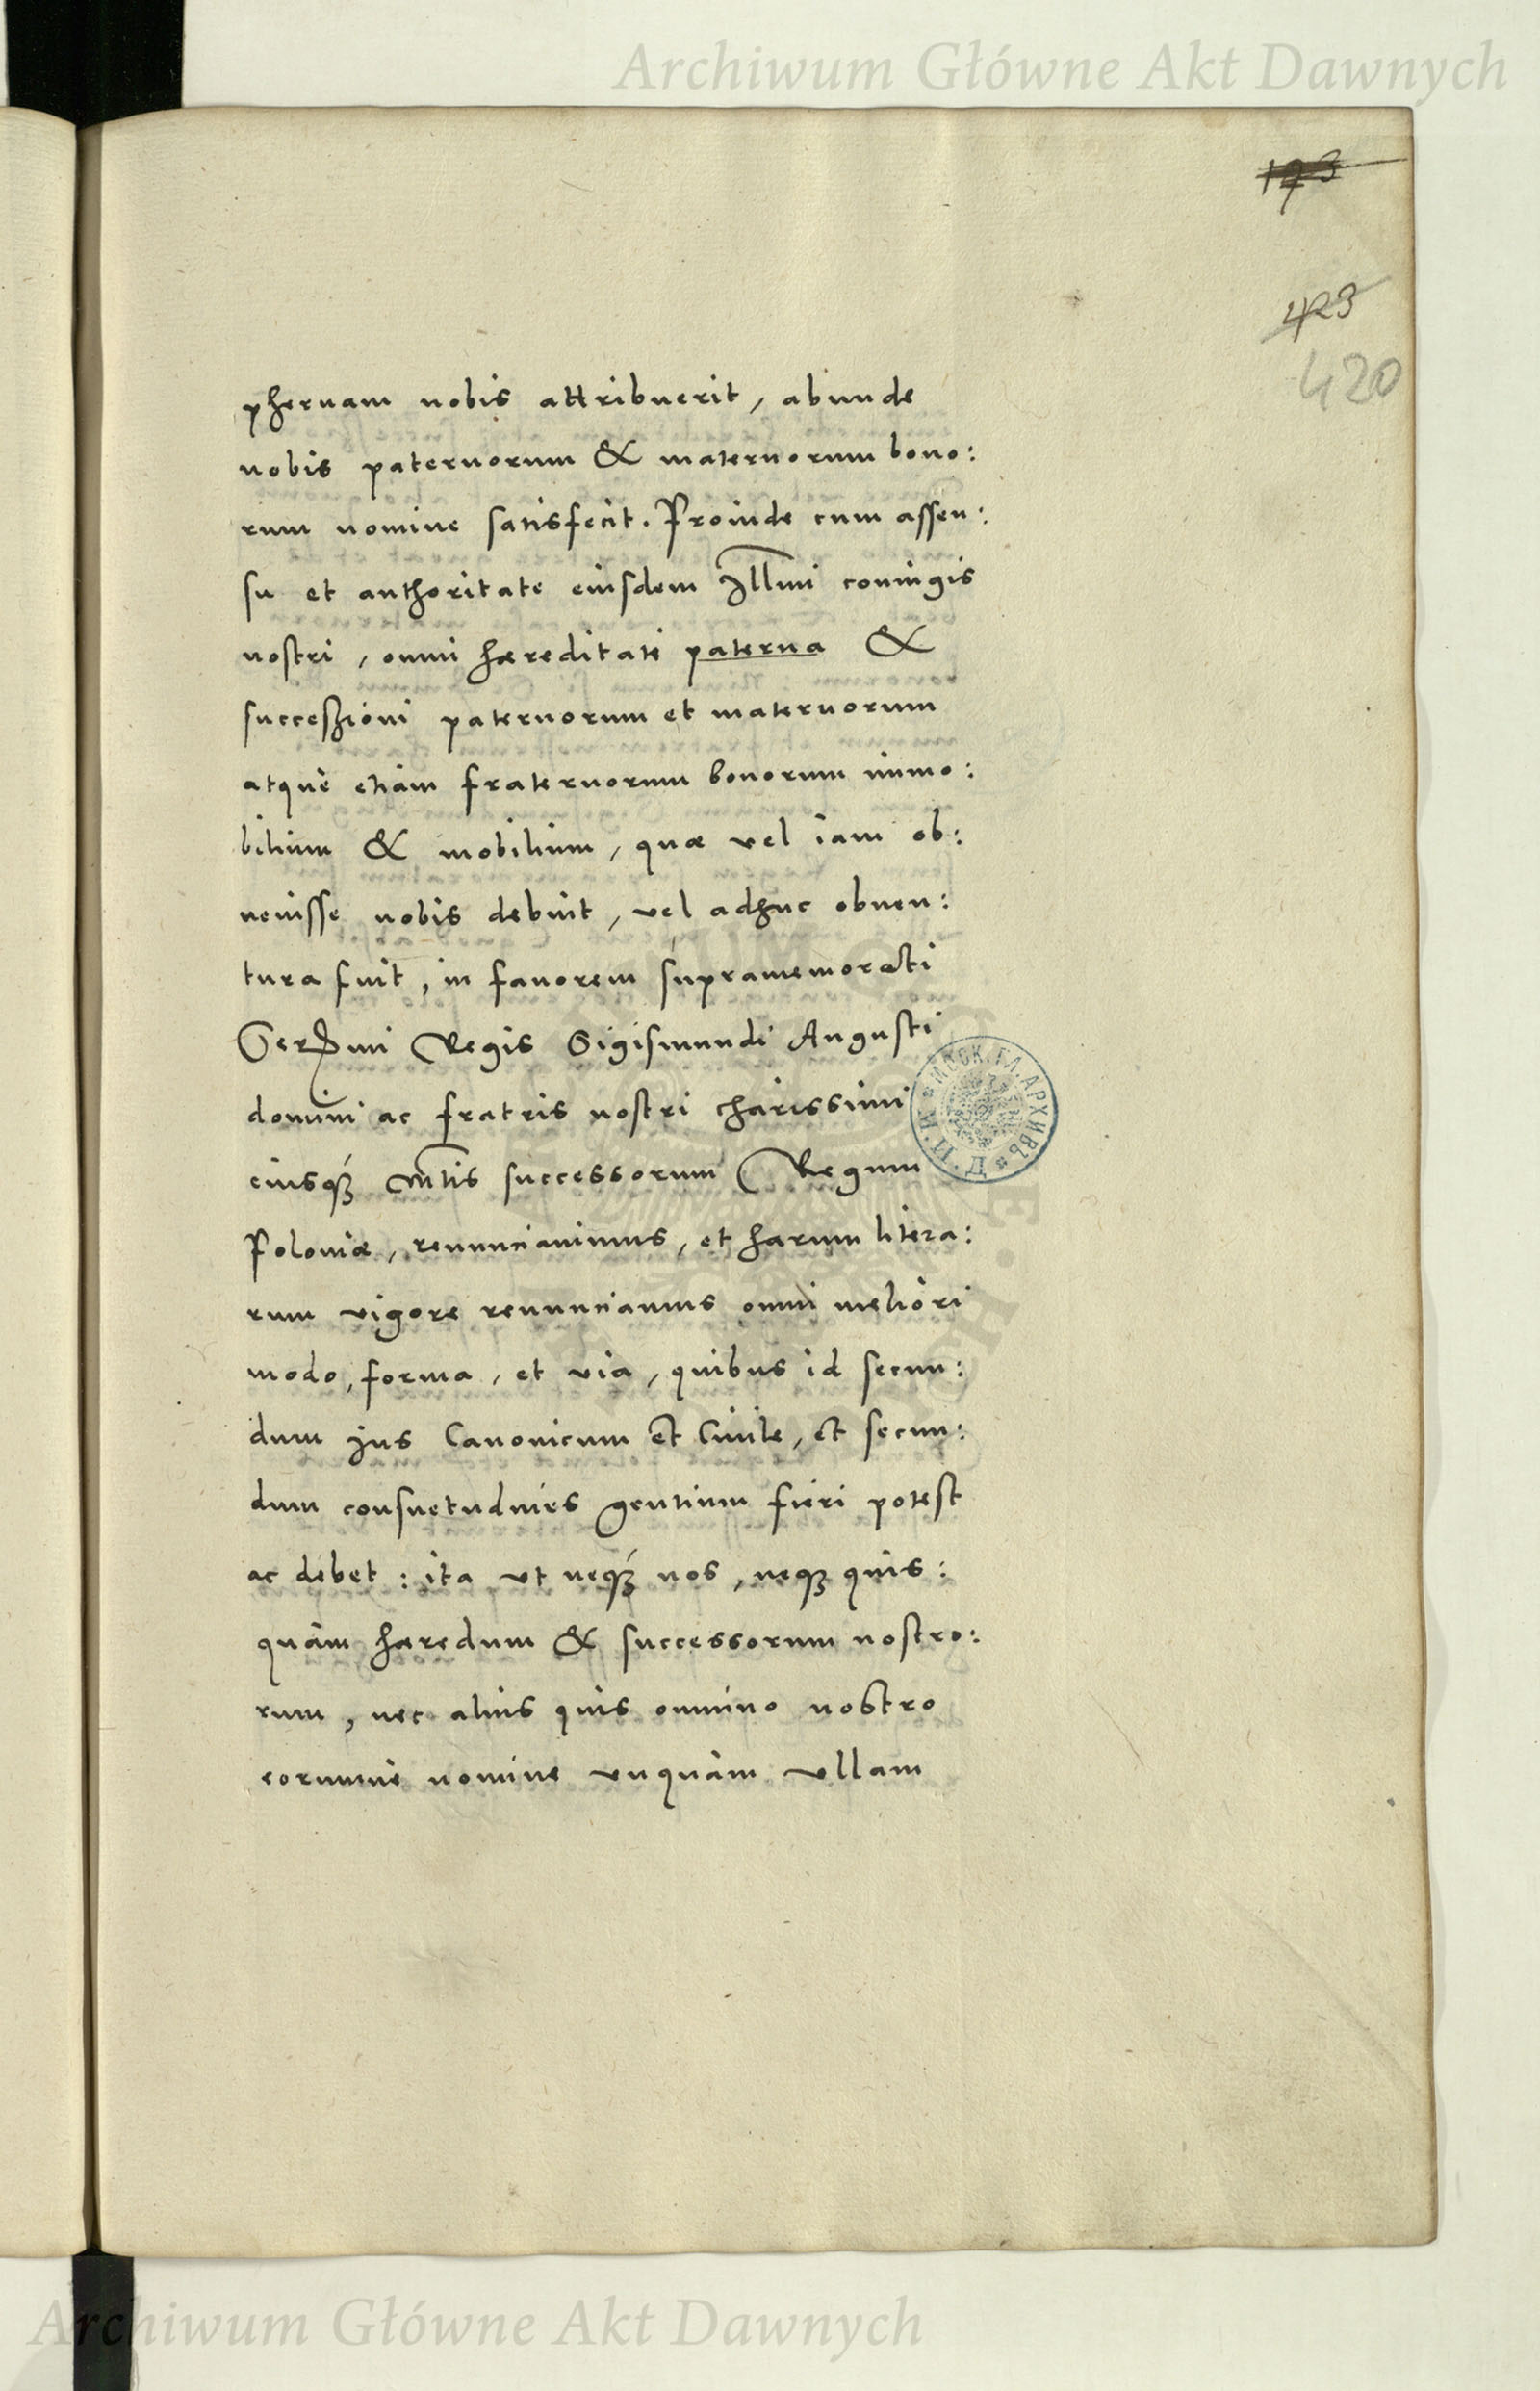 Archiwum Główne Akt Dawnych
173
423
420
phernam nobis attribuerit, abunde
nobis paternorum & maternorum bono:
rum nomine satisfecit. Proinde cum assen:
su et authoritate eiusdem Illmi coniugis
nostri, omni hæreditati paterna &
successioni paternorum et maternorum
atque etiam fraternorum bonorum immo:
bilium & mobilium, quæ vel iam ob:
uenisse nobis debuit, vel adhuc obuen:
tura fuit, in fauorem supramemorati
Sermi Regis Sigismundi Augusti
domini ac fratris nostri charissimi
eiusq₃ Mtis successorum Regum
Poloniæ, renunciauimus, et harum litera:
rum vigore renunciamus omni meliori
modo, forma, et via, quibus id secun:
dum jus Canonicum et Ciuile, et secun:
dum consuetudines gentium fieri potest
ac debet: ita vt neq₃ nos, neq₃ quis:
quam hæredum & successorum nostro:
rum, nec alius quis omnino nostro
eorumue nomine vnquam vllam
МОСК. ГЛ. АРХИВЪ * Д * П * И *
Archiwum Główne Akt Dawnych